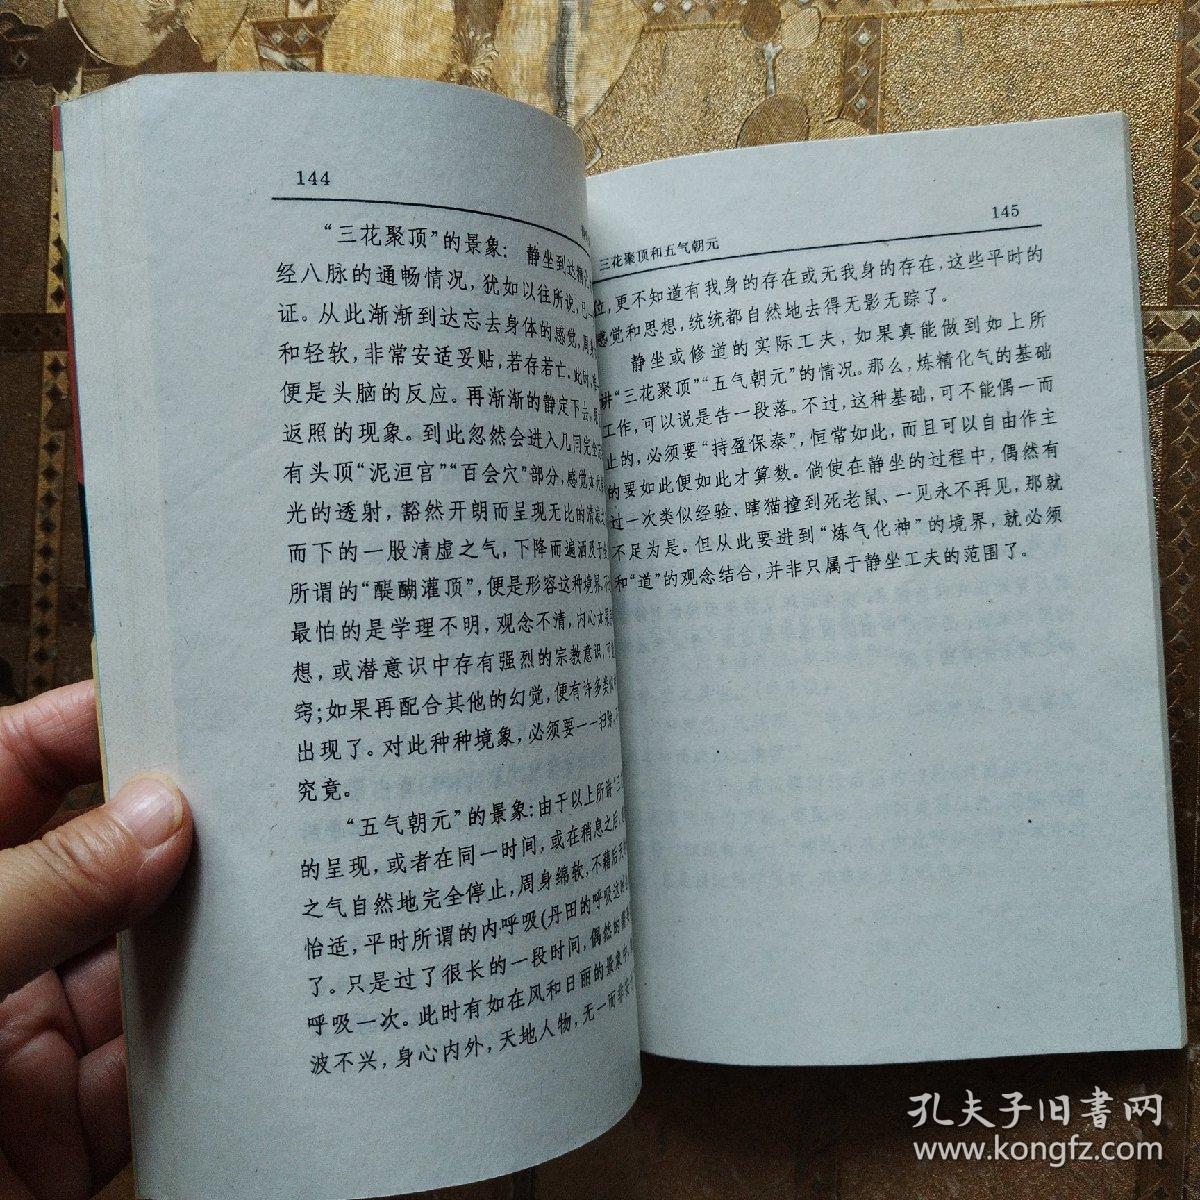 144
“三花聚顶”的景象：静坐到达精
经八脉的通畅情况，犹如以往所说，已
证。从此渐渐到达忘去身体的感觉，周身
和轻软，非常安适妥贴，若存若亡。此时，
便是头脑的反应。再渐渐的静定下去，
返照的现象。到此忽然会进入几同完全
有头顶“泥洹宫”“百会穴”部分，感觉
光的透射，豁然开朗而呈现无比的清
而下的一股清虚之气，下降而遍洒及于
所谓的“醍醐灌顶”，便是形容这种境界。
最怕的是学理不明，观念不清，内心
想，或潜意识中存有强烈的宗教意识，
窍；如果再配合其他的幻觉，便有许多类
出现了。对此种种境象，必须要一一扫除，
究竟。
“五气朝元”的景象：由于以上所讲“三
的呈现，或者在同一时间，或在稍息之后，
之气自然地完全停止，周身绵软，不藉后天
怡适，平时所谓的内呼吸（丹田的呼吸这种
了。只是过了很长的一段时间，偶然
呼吸一次。此时有如在风和日丽的景象中，
波不兴，身心内外，天地人物，无一而非
三花聚顶和五气朝元
145
位，更不知道有我身的存在或无我身的存在，这些平时的
感觉和思想，统统都自然地去得无影无踪了。
静坐或修道的实际工夫，如果真能做到如上所
讲“三花聚顶”“五气朝元”的情况。那么，炼精化气的基础
工作，可以说是告一段落。不过，这种基础，可不能偶一而
止的，必须要“持盈保泰”，恒常如此，而且可以自由作主
的要如此便如此才算数。倘使在静坐的过程中，偶然有
过一次类似经验、瞎猫撞到死老鼠、一见永不再见，那就
不足为是。但从此要进到“炼气化神”的境界，就必须
和“道”的观念结合，并非只属于静坐工夫的范围了。
孔夫子旧书网
www.kongfz.com